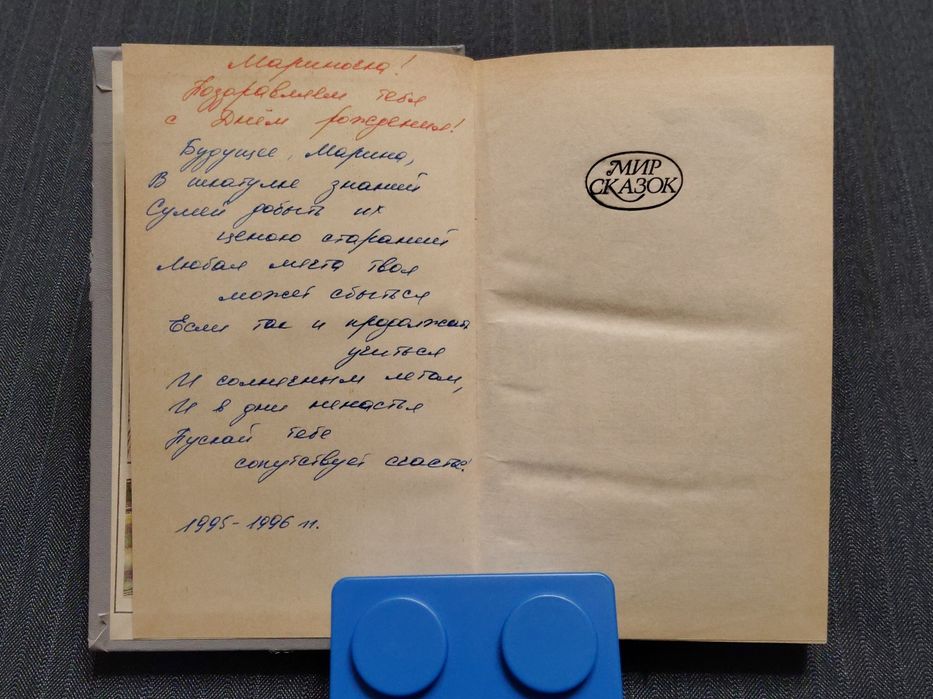 Мариночка!
Поздравляем тебя
с Днём рождения!
Будущее, Марина,
В шкатулке знаний
Сумей добыть их
ценою стараний
Любая мечта твоя
может сбыться
Если так и продолжать
учиться
И солнечным летом,
И в дни ненастья
Пускай тебе
сопутствует счастье!
1995-1996 гг.
МИР
СКАЗОК